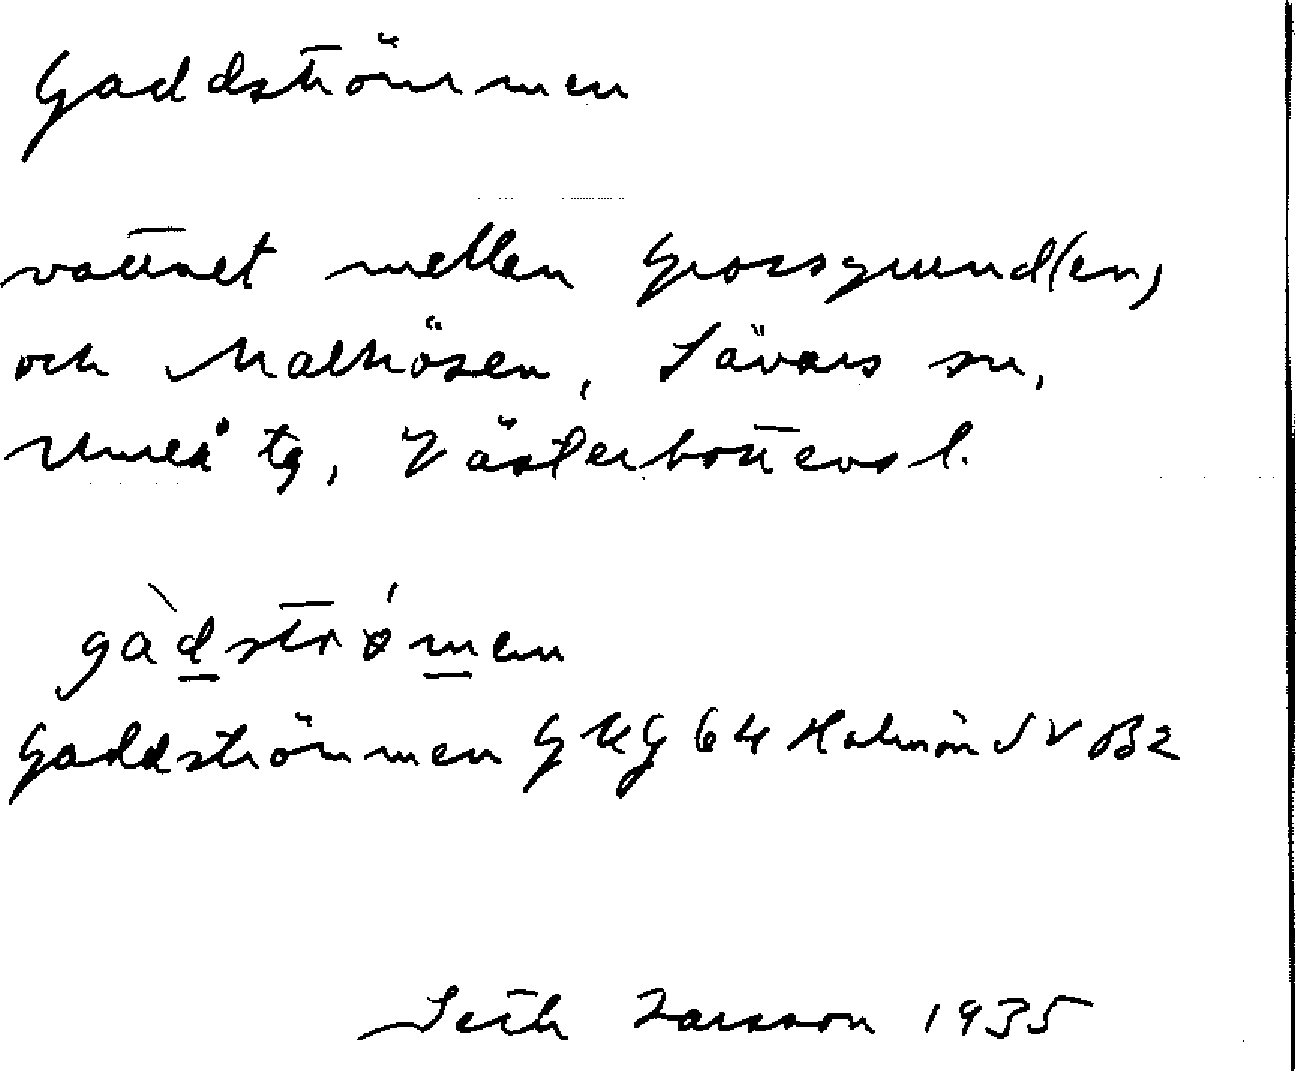 Gaddströmmen
vattnet mellan Grossgrund(en)
och Malhösen, Sävars sn,
Umeå tg, Västerbottens l.
gàd̲strǿm̲en
Gaddströmmen GKG 64 Holmön SV B2
Seth Larsson 1935